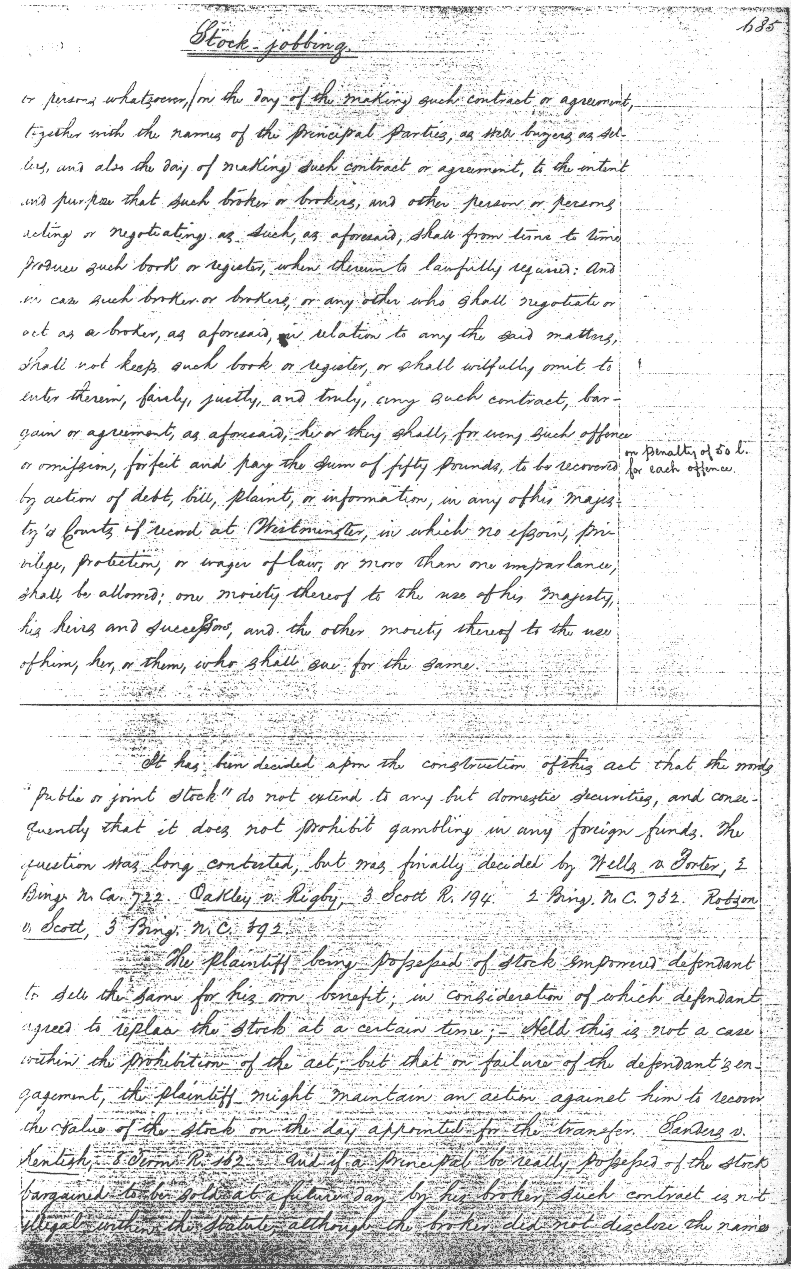 685
Stock-jobbing.
or persons whatsoever, on the day of the making such contract or agreement,
together with the names of the principal parties, as well buyers as sel-
lers, and also the day of making such contract or agreement, to the intent
and purpose that such broker or brokers, and other person or persons
acting or negotiating as such, as aforesaid, shall from time to time
produce such book or register, when thereunto lawfully required: And
in case such broker or brokers, or any other who shall negotiate or
act as a broker, as aforesaid, in relation to any the said matters,
shall not keep such book or register, or shall wilfully omit to
enter therein, fairly, justly, and truly, any such contract, bar-
gain or agreement, as aforesaid, he or they shall, for every such offence
or omission, forfeit and pay the sum of fifty pounds, to be recovered
on penalty of 50 l.
for each offence.
by action of debt, bill, plaint, or information, in any of his majes-
ty's Courts of record at Westminster, in which no essoin, pri-
vilege, protection, or wager of law, or more than one imparlance,
shall be allowed; one moiety thereof to the use of his majesty,
his heirs and successors, and the other moiety thereof to the use
of him, her, or them, who shall sue for the same.
It has been decided upon the construction of this act that the words
"public or joint stock" do not extend to any but domestic securities, and conse-
quently that it does not prohibit gambling in any foreign funds. The
question was long contested, but was finally decided by Wells v. Porter, 2
Bing. N. Ca. 722. Oakley v. Rigby, 3 Scott R. 194. 2 Bing. N. C. 732. Robson
v. Scott, 3 Bing. N. C. 392.
The plaintiff being possessed of stock empowered defendant
to sell the same for his own benefit; in consideration of which defendant
agreed to replace the stock at a certain time; - Held this is not a case
within the prohibition of the act; but that on failure of the defendant's en-
gagement, the plaintiff might maintain an action against him to recover
the value of the stock on the day appointed for the transfer. Sanders v.
Kentish, 8 Term R. 162. And if a principal be really possessed of the stock
bargained to be sold at a future day by his broker, such contract is not
illegal within the statute, although the broker did not disclose the name